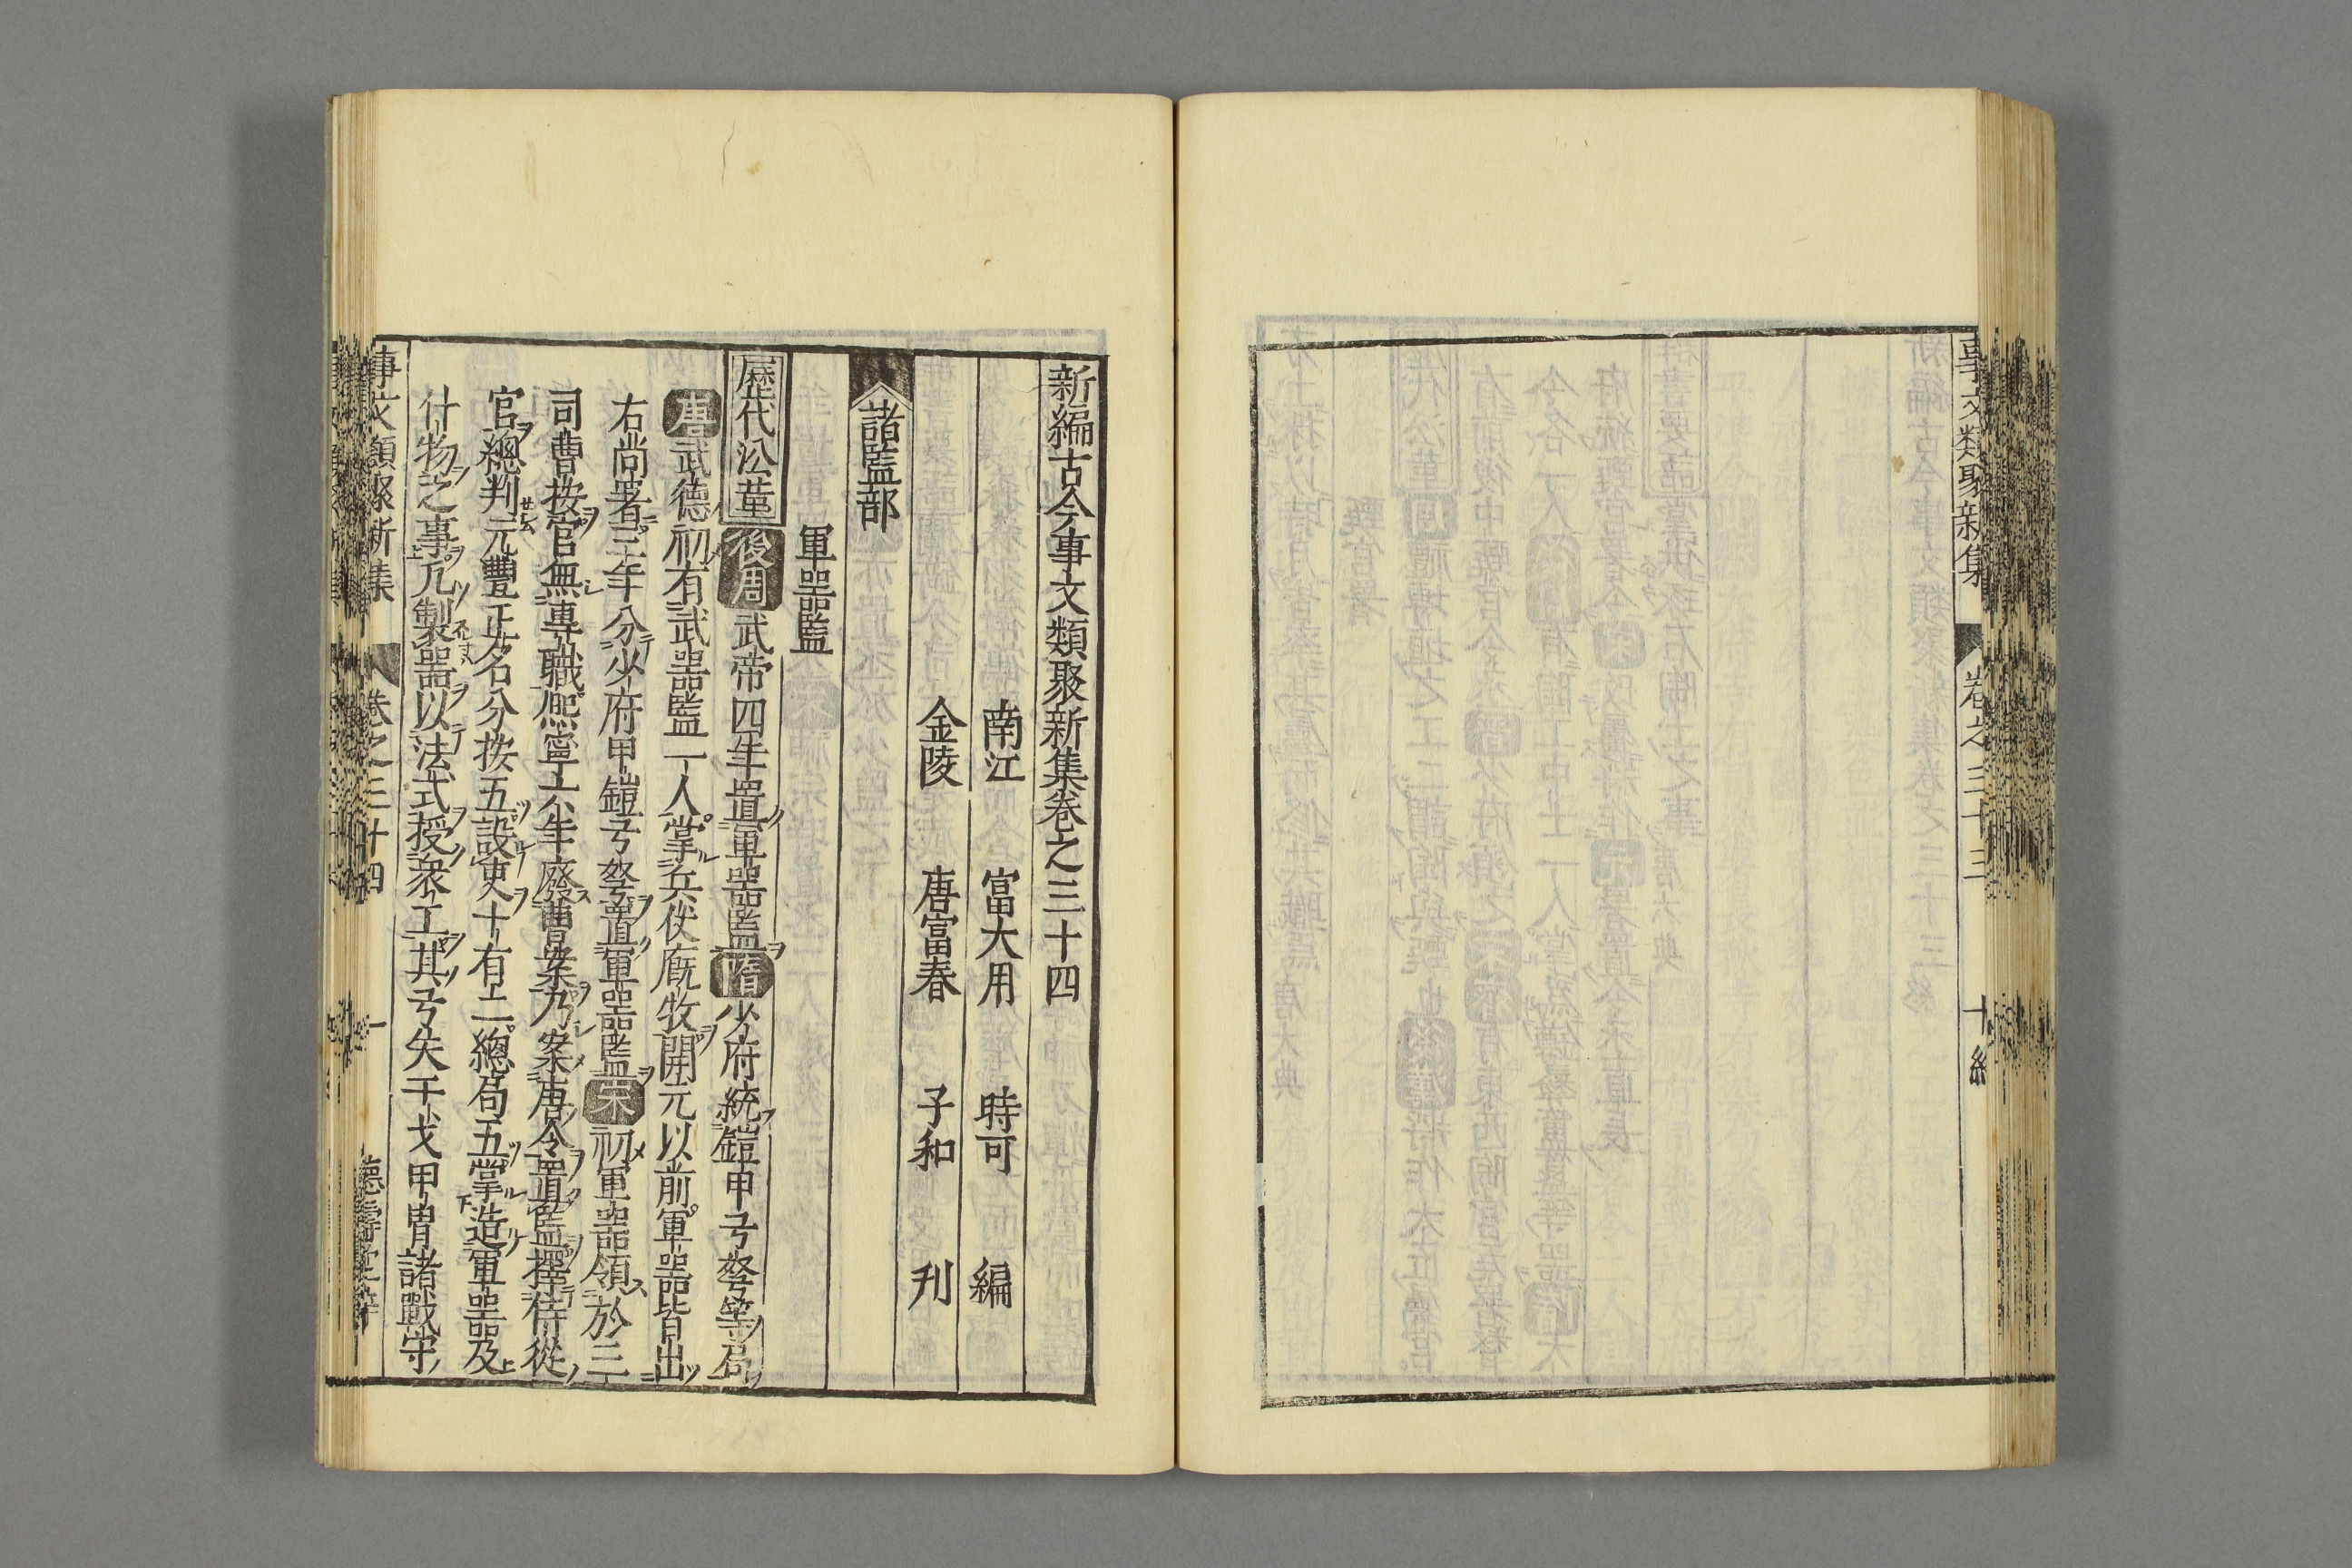 事文類聚新集 卷之三十三 十終
新編古今事文類聚新集卷之三十四
南江 富大用 時可 編
金陵 唐富春 子和 刋
諸監部
軍器監
歷代㳂革 後周 武帝四年置軍器監 隋 少府統鎧甲弓弩等局
唐 武德初有武器監一人掌兵仗廐牧開元以前軍器皆出
右尚署三年分少府甲鎧弓弩置軍器監 宋 初軍器領於三
司曹按官無專職熈寧六年廢曹案乃案唐令置監擇侍從
官總判元豐正名分按五設吏十有二總局五掌造軍器及
什物之事凡製器以法式授衆工其弓矢干戈甲冑諸戰守
事文類聚新集 卷之三十四 一 德壽堂梓